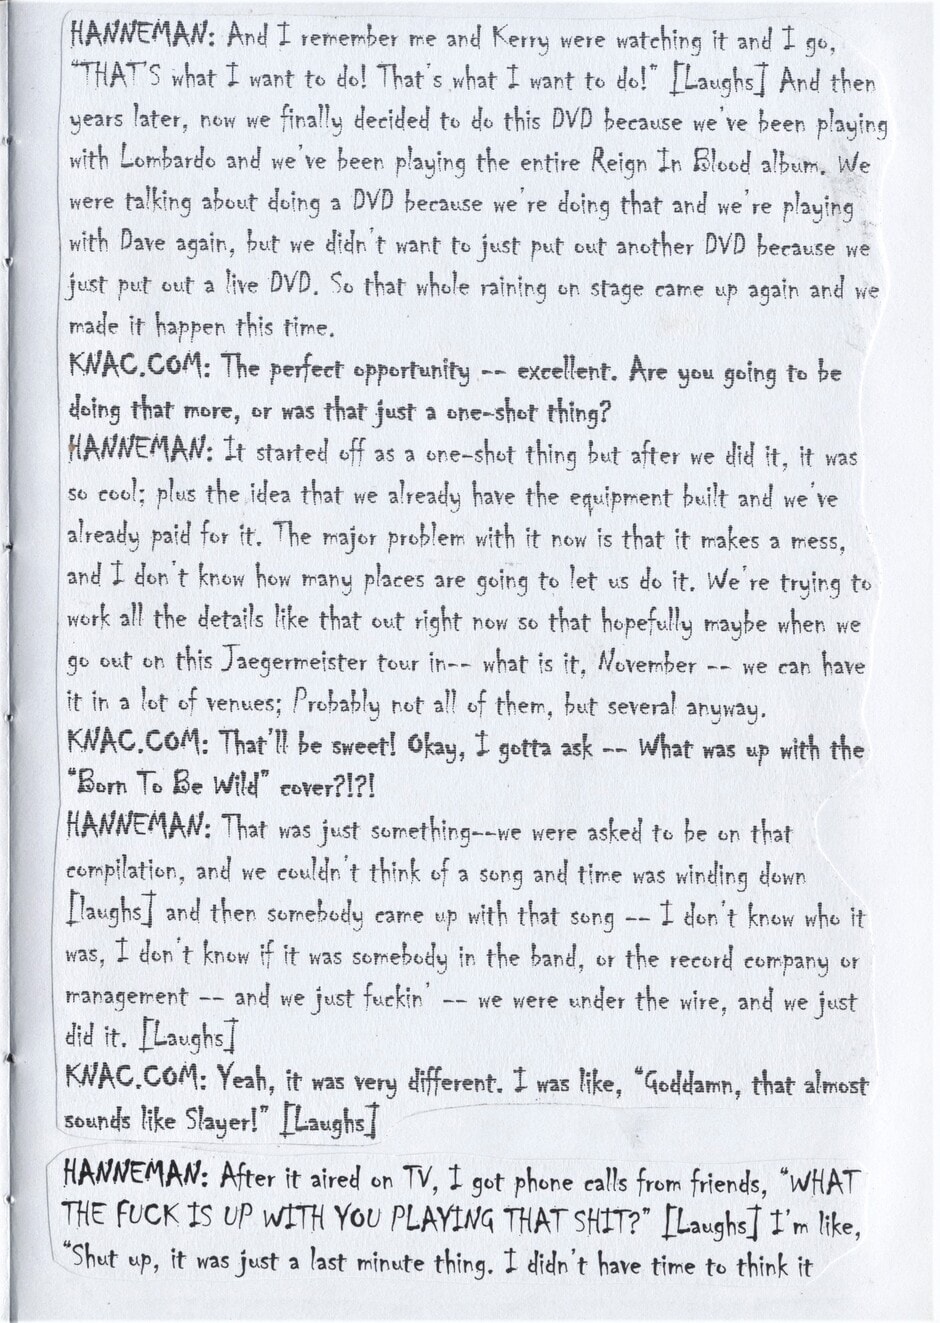 HANNEMAN: And I remember me and Kerry were watching it and I go,
"THAT'S what I want to do! That's what I want to do!" [Laughs] And then
years later, now we finally decided to do this DVD because we've been playing
with Lombardo and we've been playing the entire Reign In Blood album. We
were talking about doing a DVD because we're doing that and we're playing
with Dave again, but we didn't want to just put out another DVD because we
just put out a live DVD. So that whole raining on stage came up again and we
made it happen this time.
KNAC.COM: The perfect opportunity -- excellent. Are you going to be
doing that more, or was that just a one-shot thing?
HANNEMAN: It started off as a one-shot thing but after we did it, it was
so cool; plus the idea that we already have the equipment built and we've
already paid for it. The major problem with it now is that it makes a mess,
and I don't know how many places are going to let us do it. We're trying to
work all the details like that out right now so that hopefully maybe when we
go out on this Jaegermeister tour in-- what is it, November -- we can have
it in a lot of venues; Probably not all of them, but several anyway.
KNAC.COM: That'll be sweet! Okay, I gotta ask -- What was up with the
"Born To Be Wild" cover?!?!
HANNEMAN: That was just something--we were asked to be on that
compilation, and we couldn't think of a song and time was winding down
[laughs] and then somebody came up with that song -- I don't know who it
was, I don't know if it was somebody in the band, or the record company or
management -- and we just fuckin' -- we were under the wire, and we just
did it. [Laughs]
KNAC.COM: Yeah, it was very different. I was like, "Goddamn, that almost
sounds like Slayer!" [Laughs]
HANNEMAN: After it aired on TV, I got phone calls from friends, "WHAT
THE FUCK IS UP WITH YOU PLAYING THAT SHIT?" [Laughs] I'm like,
"Shut up, it was just a last minute thing. I didn't have time to think it